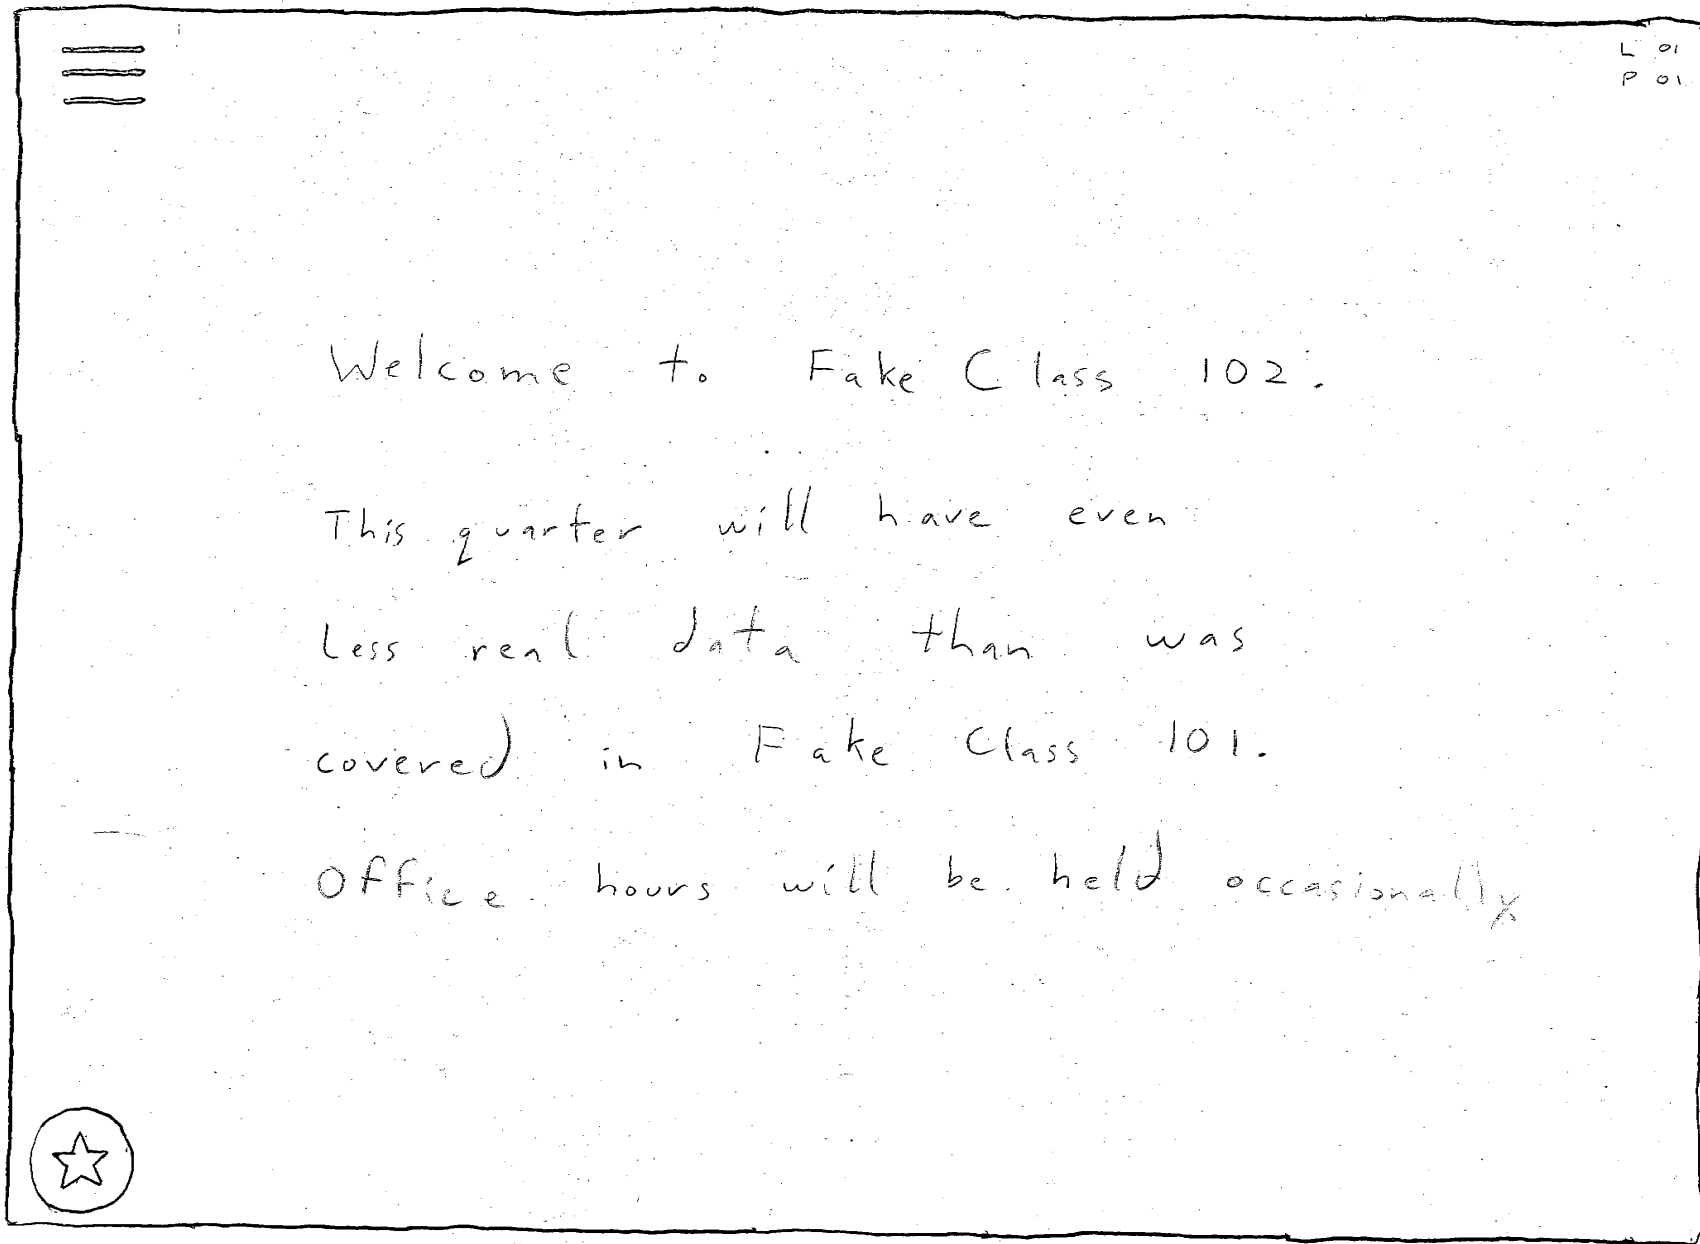 L 01
P 01
Welcome to Fake Class 102.
This quarter will have even
less real data than was
covered in Fake Class 101.
Office hours will be held occasionally